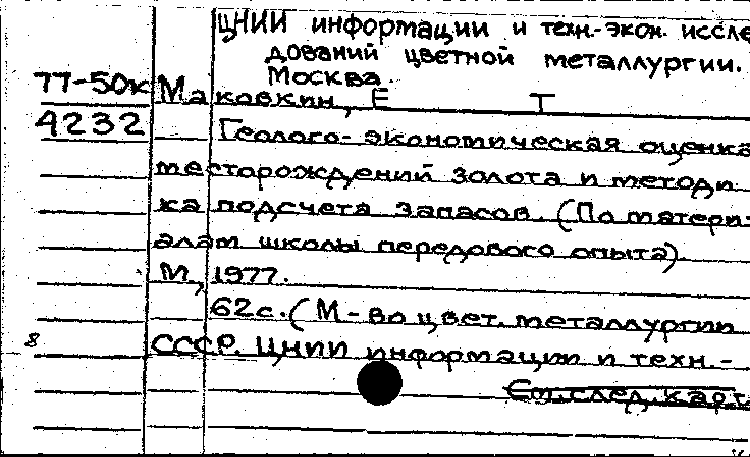 ЦНИИ информации и техн.-экон. иссле
дований цветной металлургии.
Москва.
77-50к Маковкин, Е Т
4232 Геолого-экономическая оценка
месторождений золота и методи
ка подсчета запасов. (По матери-
алам школы передового опыта)
М, 1977.
62с. (М-во цвет. металлургии
8 СССР. ЦНИИ информации и техн.-
См. след. карт.